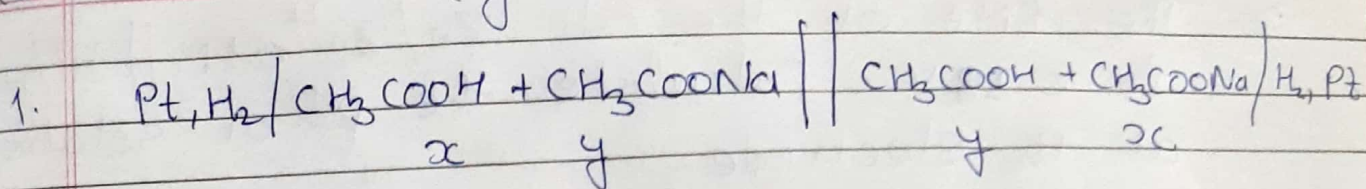 1. Pt, H₂ | CH₃COOH + CH₃COONa || CH₃COOH + CH₃COONa | H₂, Pt
x y y x